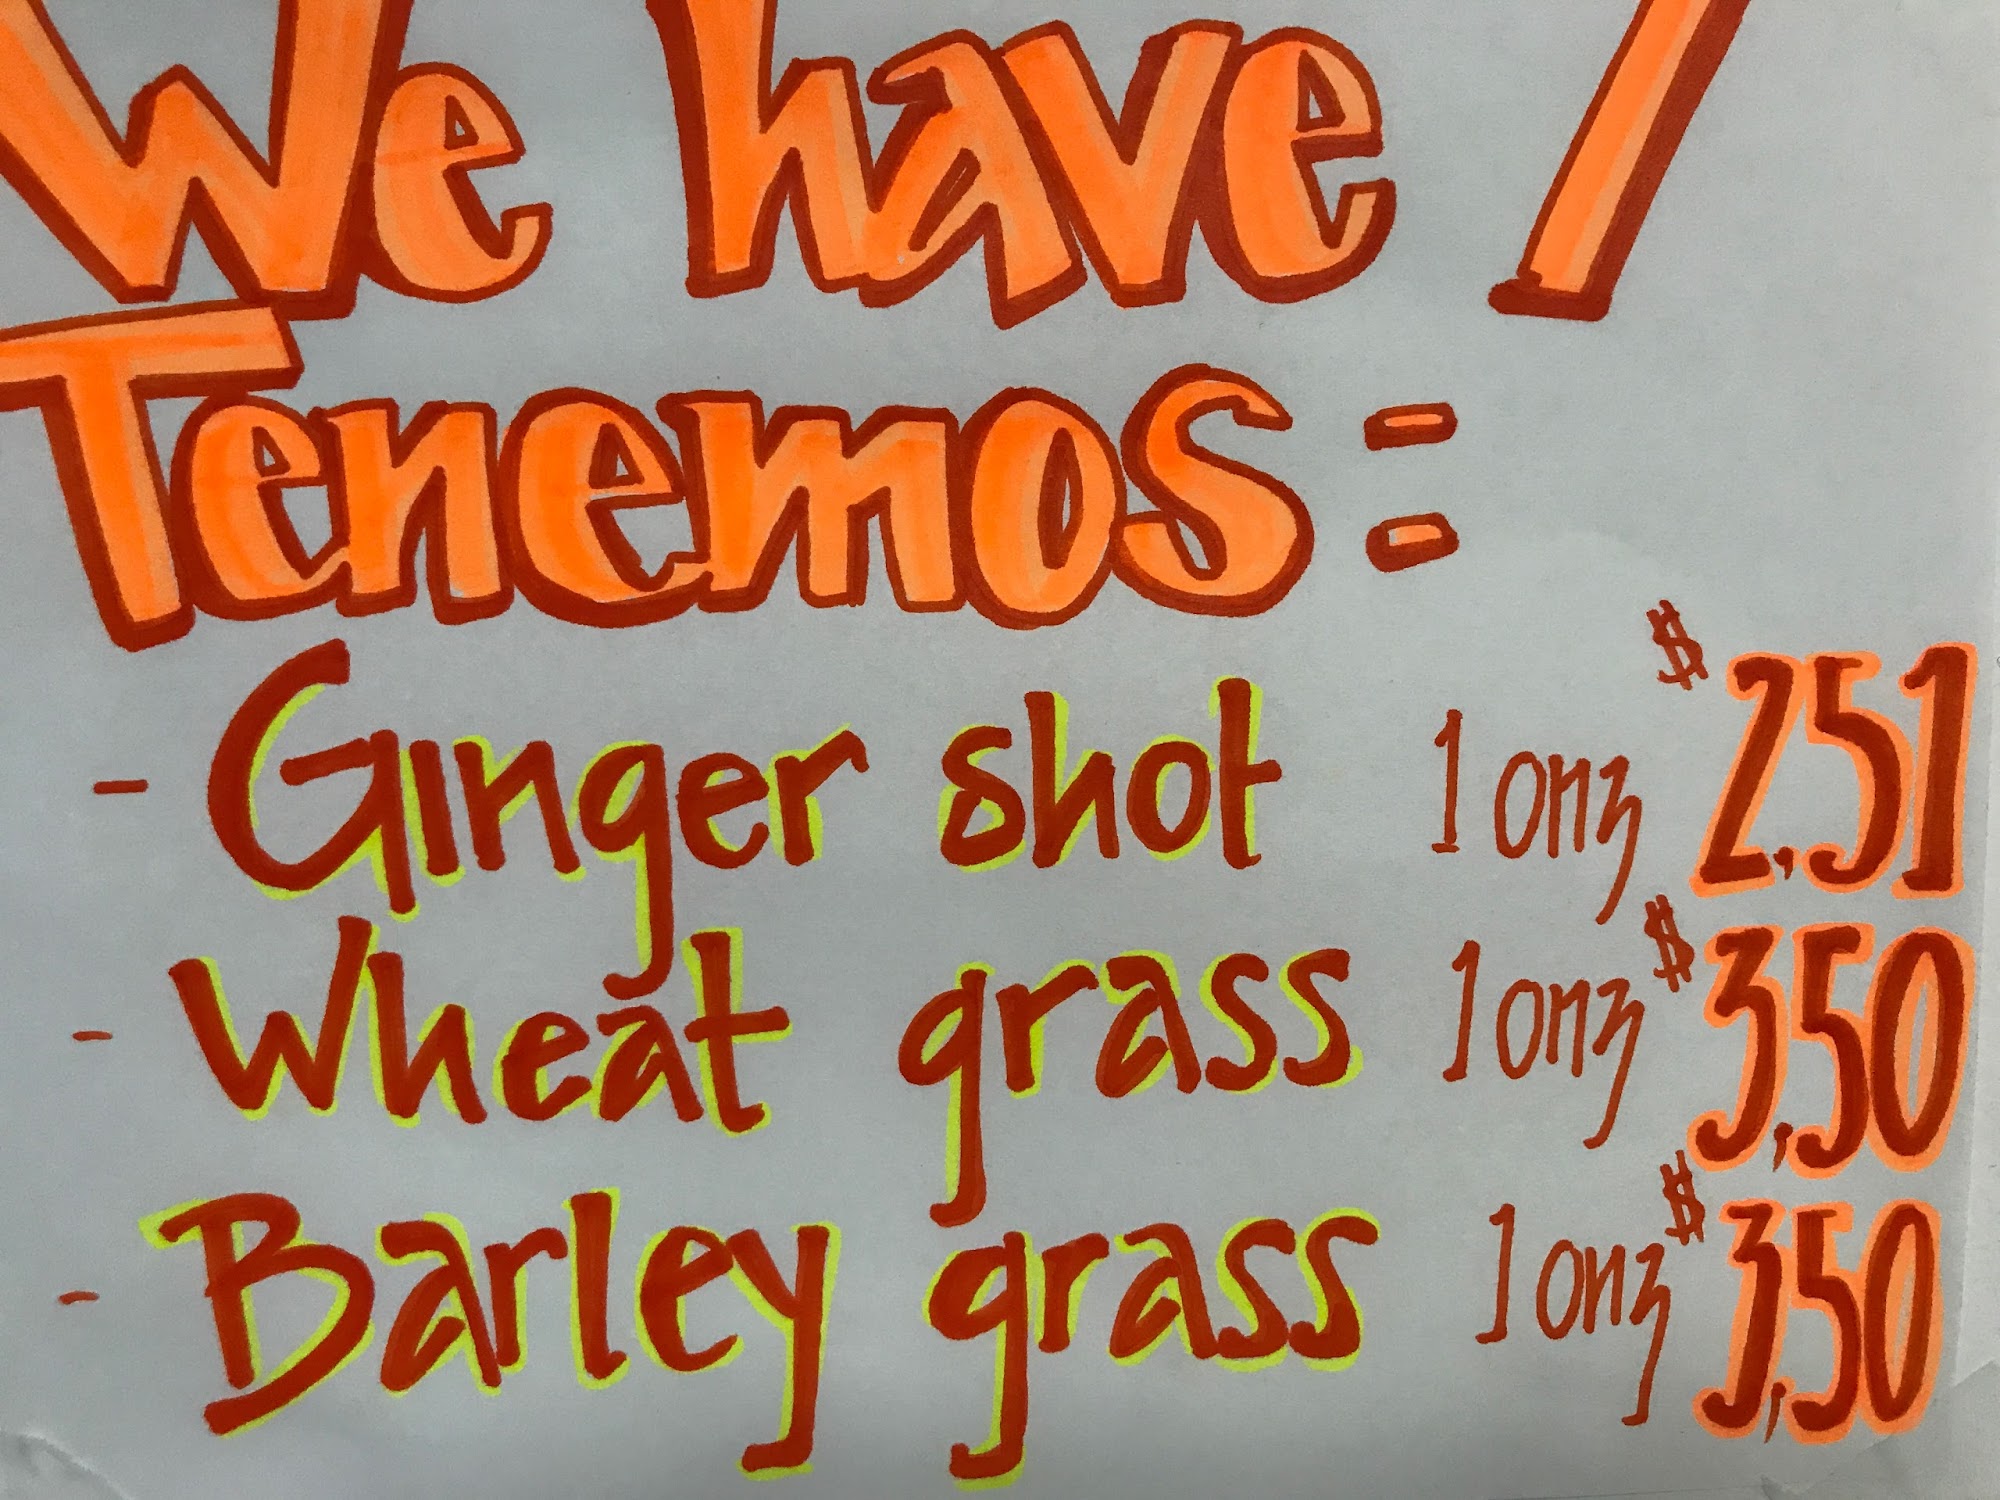 We have /
Tenemos:
- Ginger shot 1 onz $2,51
- Wheat grass 1 onz $3,50
- Barley grass 1 onz $3,50